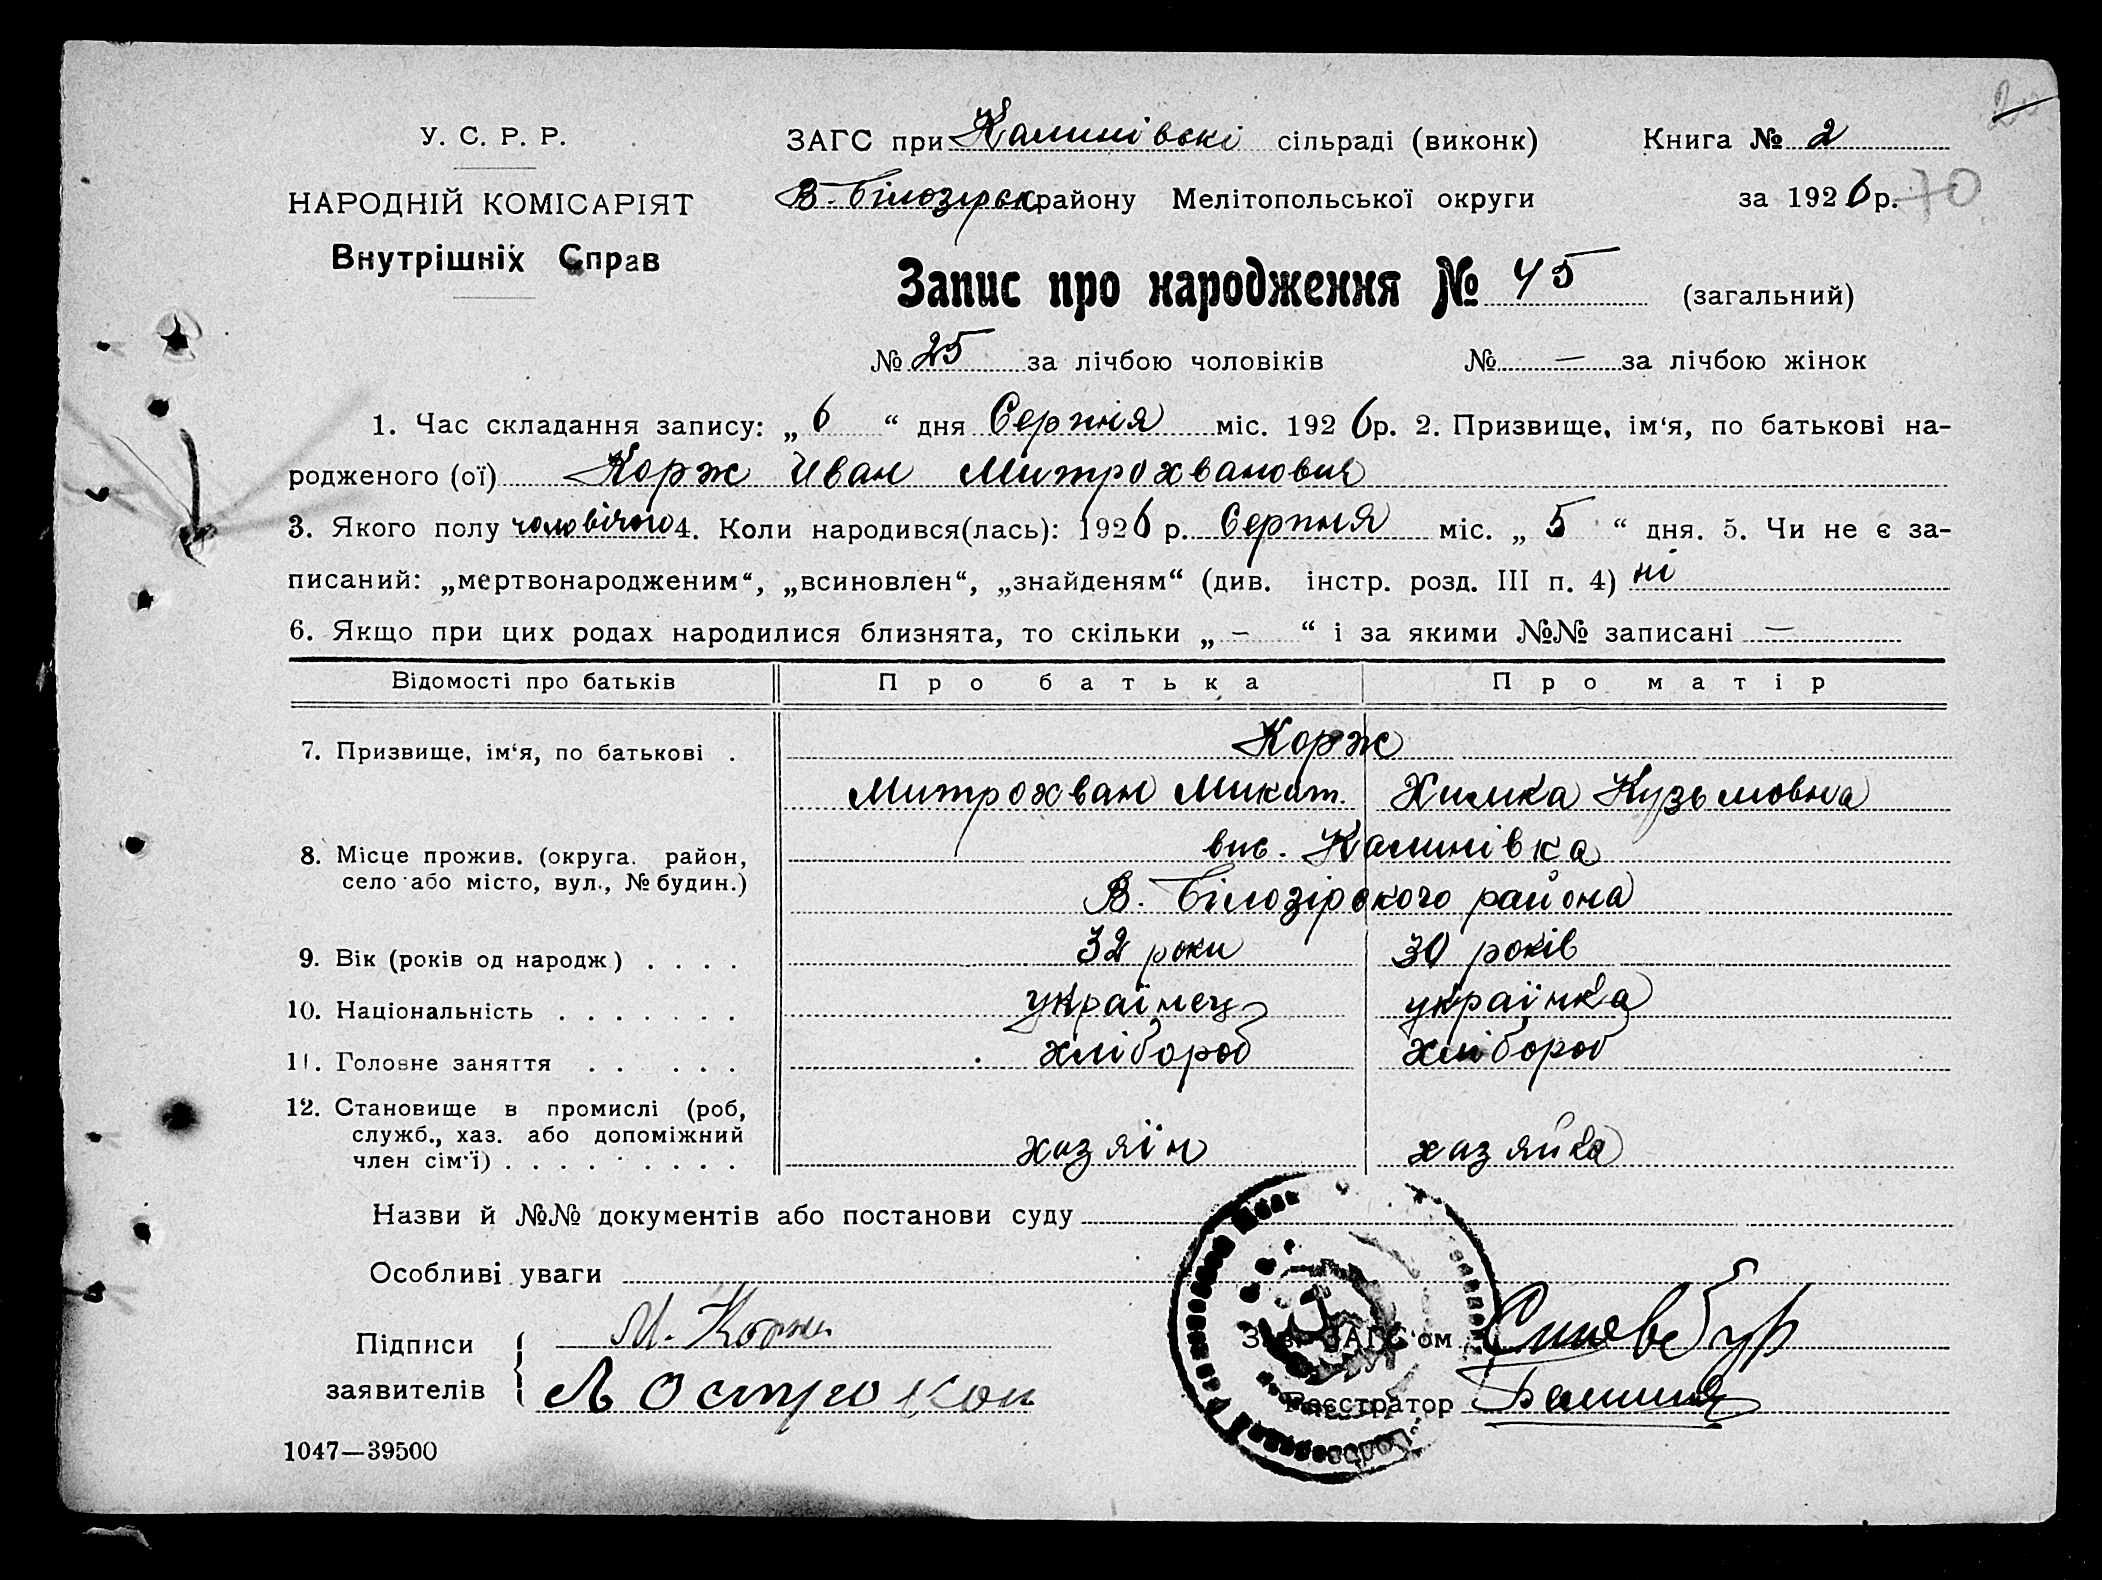 У. С. Р. Р.
НАРОДНІЙ КОМІСАРІЯТ
Внутрішніх Справ
ЗАГС при Калинівскі сільраді (виконк)
Книга № 2
В. Білозірск району Мелітопольської округи
за 1926 р.
70
Запис про народження № 45 (загальний)
№ 25 за лічбою чоловіків № — за лічбою жінок
1. Час складання запису: „ 6 “ дня Серпня міс. 1926 р. 2. Призвище, ім‘я, по батькові на-
родженого (ої) Корж Иван Митрохванович
3. Якого полу чоловічого 4. Коли народився(лась): 1926 р. Серпня міс. „ 5 “ дня. 5. Чи не є за-
писаний: „мертвонародженим“, „всиновлен“, „знайденям“ (див. інстр. розд. III п. 4) ні
6. Якщо при цих родах народилися близнята, то скільки „ – “ і за якими №№ записані —
Відомості про батьків Про батька Про матір
7. Призвище, ім‘я, по батькові . Корж
Митрохван Микит. Химка Кузьмовна
8. Місце прожив. (округа. район,
село або місто, вул., № будин.)
вис. Калинівка
В. Білозірского района
9. Вік (років од народж) . . . . 32 роки 30 років
10. Національність . . . . . . . українец українка
11. Головне заняття . . . . . хлібороб хлібороб
12. Становище в промислі (роб,
служб., хаз. або допоміжний
член сім'ї) . . . . . . . . . хазяїн хазяйка
Назви й №№ документів або постанови суду
Особливі уваги
Підписи
заявителів
М. Корж
Зав. ЗАГС'ом
Реєстратор
1047—39500